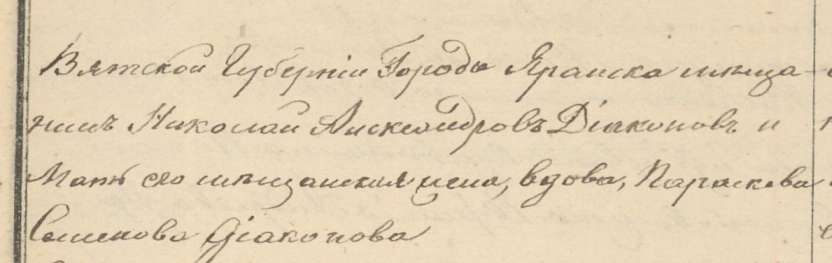 Вятской Губернiи Города Яранска мѣща-
нинъ Николай Александровъ Дiаконовъ и
Мать его мѣщанская жена, вдова, Параскева
Семенова Дiаконова